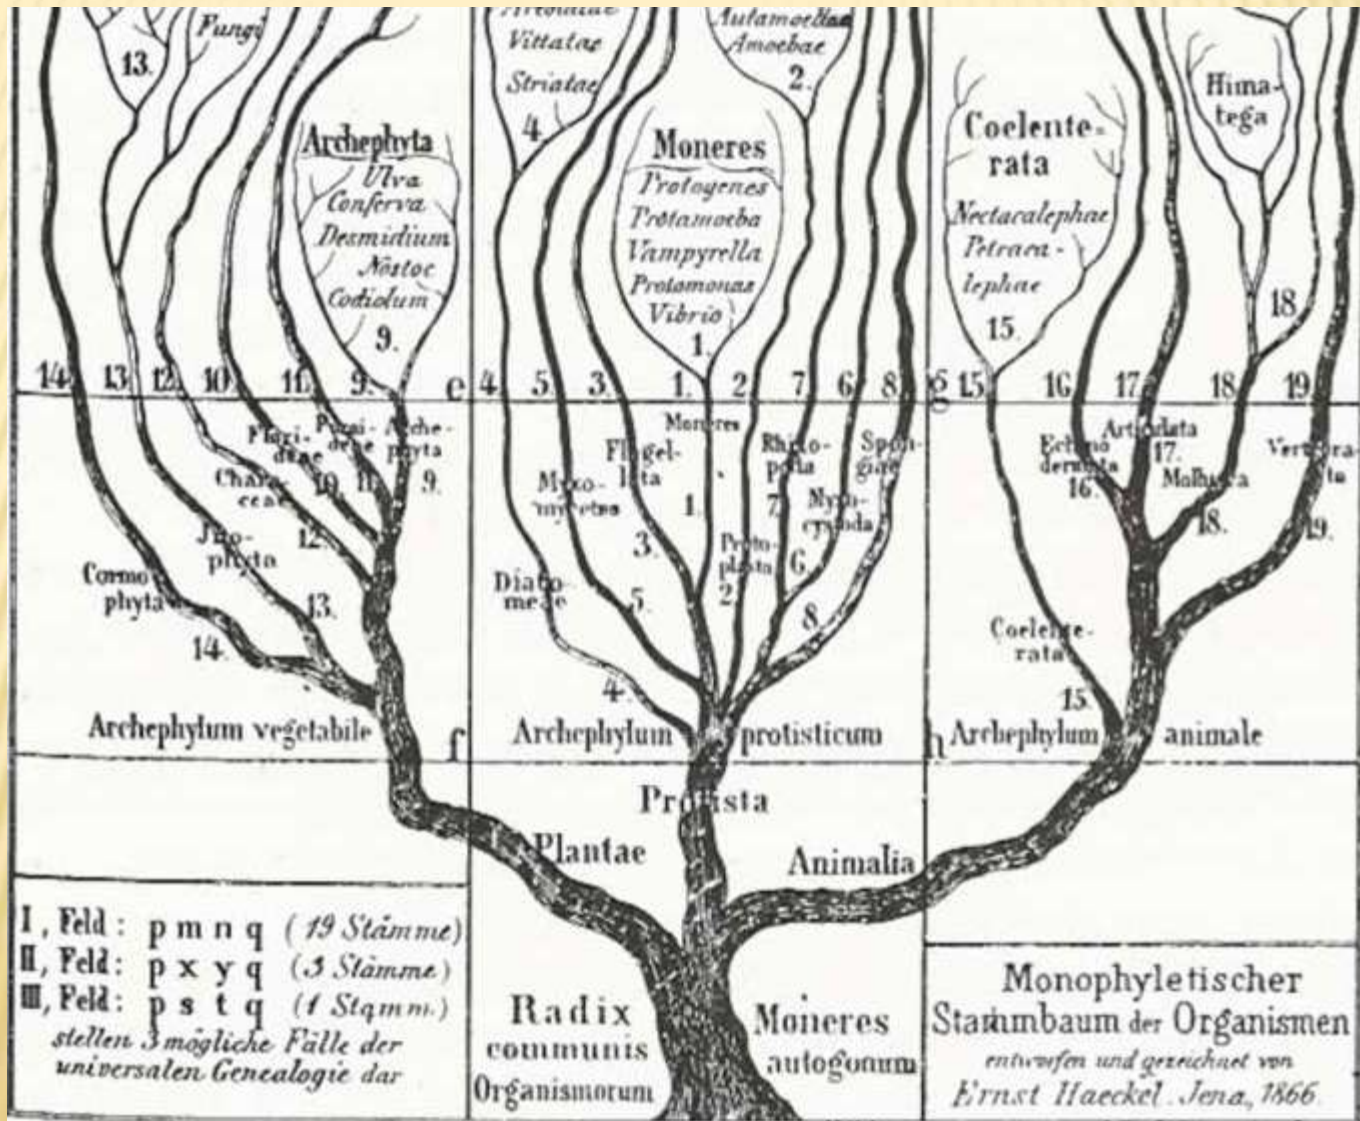 Fungi
13.
Vittatae
Striatae
4.
Amoebae
2.
Archephyta
Ulva
Conferva
Desmidium
Nostoc
Codiolum
9.
Moneres
Protogenes
Protamoeba
Vampyrella
Protomonas
Vibrio
1.
Coelente-
rata
Nectacalephae
Petraca-
lephae
15.
Hima-
tega
18
14. 13. 12. 10. 11. 9. e 4. 5. 3. 1. 2 7. 6. 8. g 15. 16. 17. 18. 19.
Flori-
deae
10.
11.
Arche-
phyta
9.
Chara-
ceae
12.
phyta
13.
Cormo
phyta
14.
Moneres
1.
Flagel-
lata
3.
Myxo-
mycetes
5.
Diato-
meae
4.
Proto-
plasta
2
Rhizo-
poda
7.
6.
Spon-
giae
8.
Echino
dermata
16.
Articulata
17.
Mollusca
18.
Vertebra-
ta
19.
Coelente-
rata
15.
Archephylum vegetabile f Archephylum protisticum h Archephylum animale
Protista
Plantae
Animalia
I, Feld: p m n q (19 Stämme)
II, Feld: p x y q (3 Stämme)
III, Feld: p s t q (1 Stamm.)
stellen 3 mögliche Fälle der
universalen Genealogie dar
Radix
communis
Organismorum
Moneres
autogonum
Monophyletischer
Stammbaum der Organismen
entworfen und gezeichnet von
Ernst Haeckel. Jena, 1866.